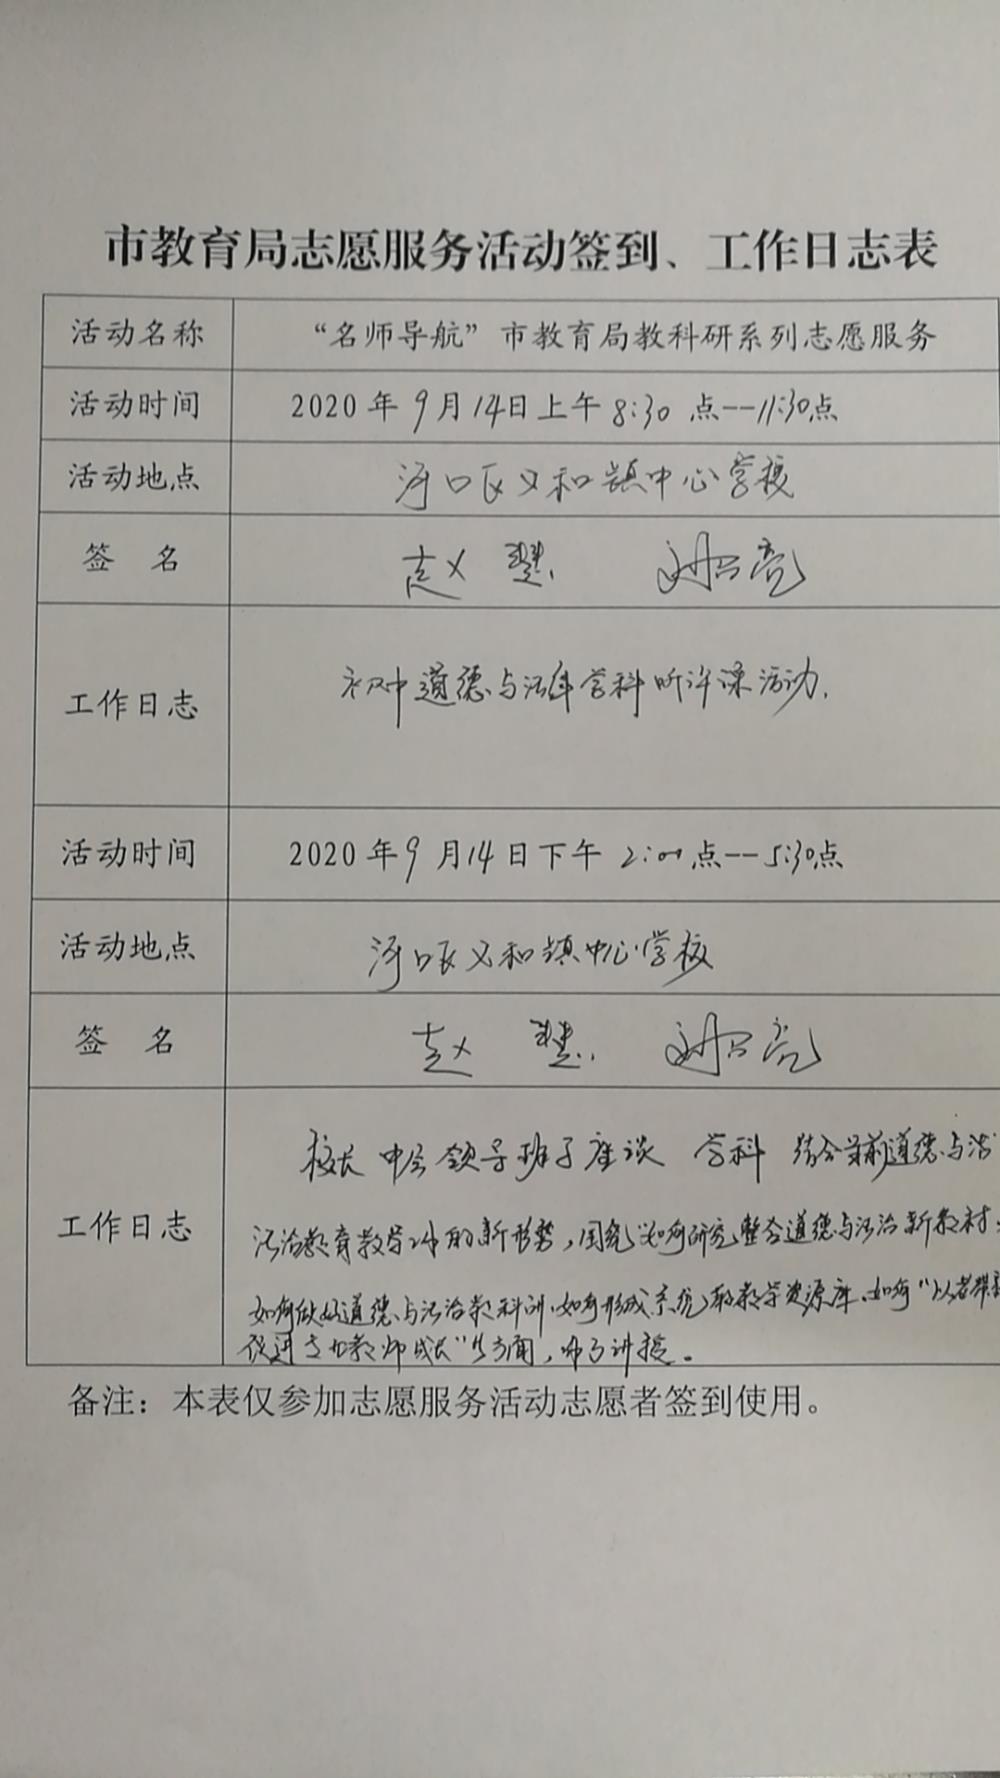 市教育局志愿服务活动签到、工作日志表
活动名称 “名师导航”市教育局教科研系列志愿服务
活动时间 2020年9月14日上午8:30点--11:30点
活动地点 河口区义和镇中心学校
签 名 赵 慧
工作日志 初中道德与法律学科听评课活动.
活动时间 2020年9月14日下午2:00点--5:30点
活动地点 河口区义和镇中心学校
签 名 赵 慧
校长 中层领导班子座谈 学科 结合当前道德与法
工作日志 法治教育教学 的新形势，围绕如何研究整合道德与法治新教材
如何做好道德与法治教科研.如何形成系统的教学资源库.如何“以老带
促进 教师成长”等方面，作了讲授。
备注：本表仅参加志愿服务活动志愿者签到使用。